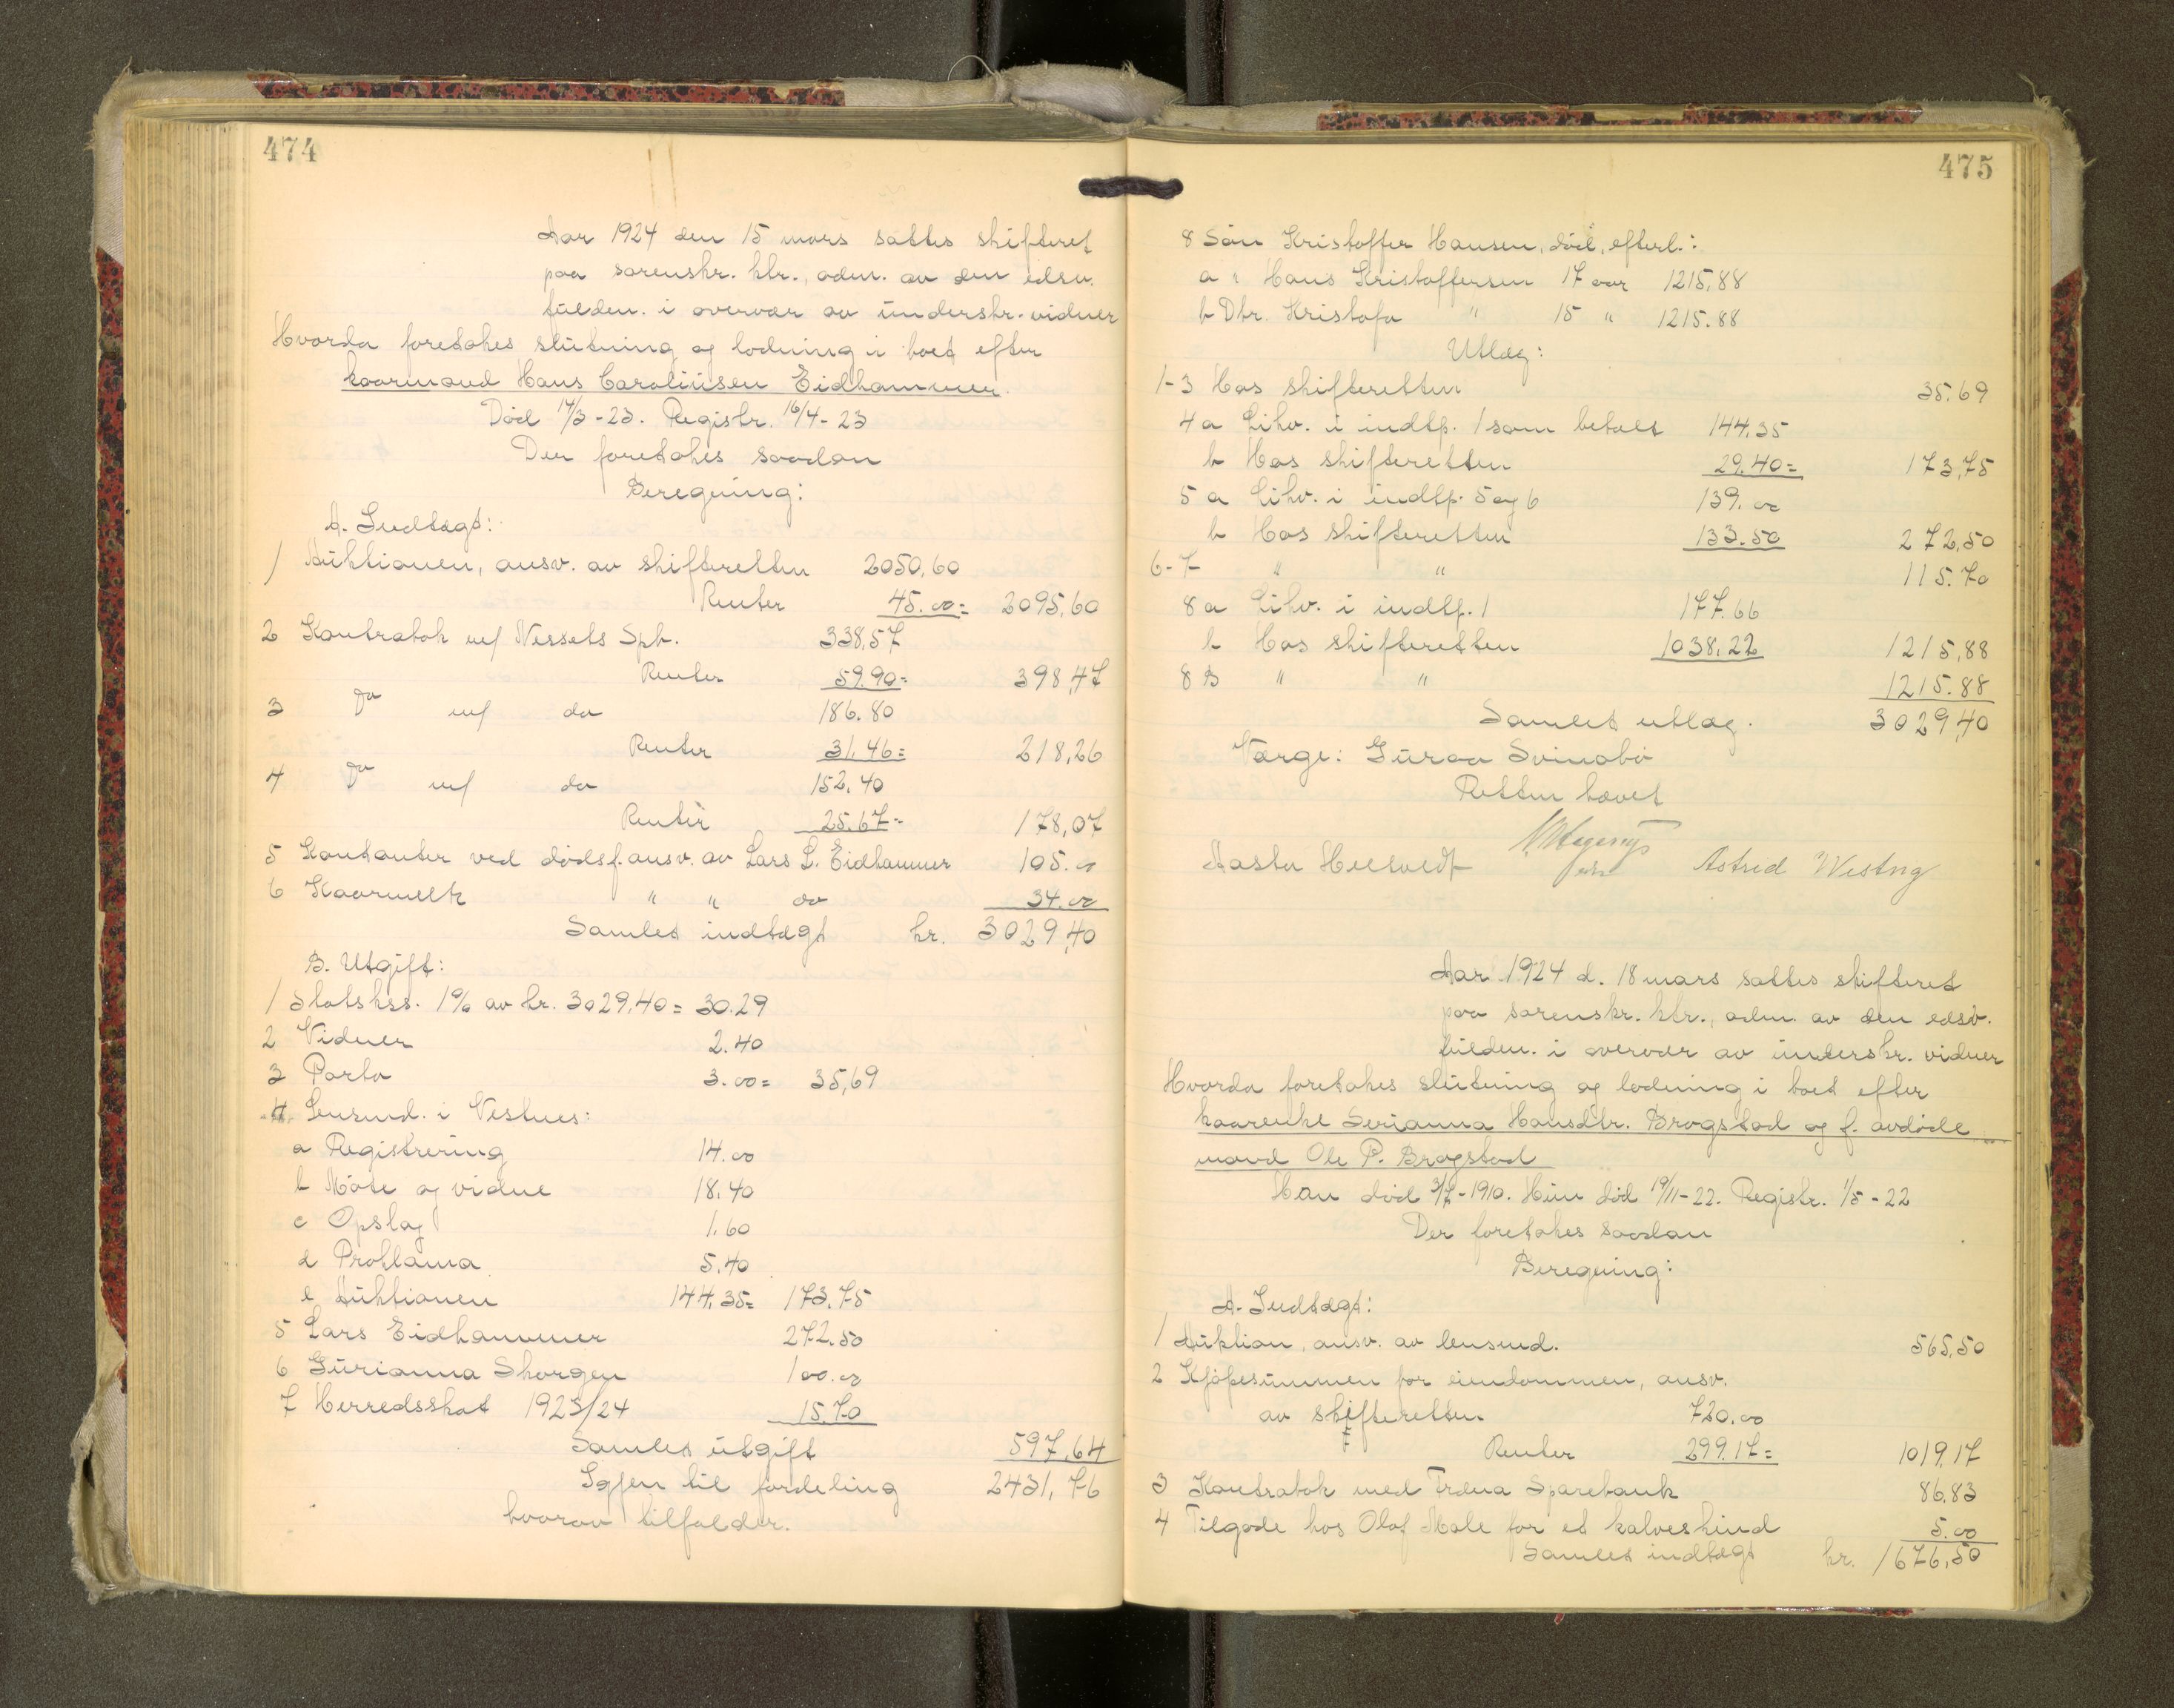 474
Aar 1924 den 15 mars sattes skifteret
paa sorenskr. ktr., adm. av den edsv.
fuldm. i overvær av underskr. vidner
Hvorda foretokes slutning og lodning i boet efter
kaarmand Hans Caroliusen Eidhammer.
Død 14/3-23. Registr. 16/4-23
Der foretokes saadan
Beregning:
A. Indtægt:
1 Auktionen, ansv. av skifteretten 2050,60
Renter 45.00= 2095,60
2 Kontrabok m/ Nessets Spb. 338,57
Renter 59.90= 398,47
3 Do m/ do 186.80
Renter 31.46= 218,26
4 Do m/ do 152.40
Renter 25.67= 178,07
5 Kontanter ved dødsf. ansv. av Lars L. Eidhammer 105.00
6 Kaarmelk " " do 34.00
Samlet indtægt kr. 3029,40
B. Utgift:
1 Statskss. 1% av kr. 3029,40 = 30.29
2 Vidner 2.40
3 Porto 3.00= 35,69
4 Lensmd. i Vestnes:
a Registrering 14.00
b Møte og vidne 18.40
c Opslag 1.60
d Proklama 5.40
e Auktionen 144.35= 173.75
5 Lars Eidhammer 272.50
6 Gurianna Skorgen 100.00
7 Herredsskat 1923/24 15.70
Samlet utgift 597,64
Igjen til fordeling 2431,76
hvorav tilfalder.
475
8 Søn Kristoffer Hansen, død, efterl.:
a " Hans Kristoffersen 17 aar 1215,88
b Dtr. Kristofa " 15 " 1215.88
Utlæg:
1-3 Hos skifteretten 35.69
4 a Likv. i indtp. 1 som betalt 144.35
b Hos skifteretten 29.40= 173,75
5 a Likv. i indtp. 5 og 6 139.00
b Hos skifteretten 133.50 272,50
6-7 " " 115.70
8 a Likv. i indtp. 1 177.66
b Hos skifteretten 1038.22 1215,88
8 B " " 1215.88
Samlet utlæg. 3029,40
Værge: Guroa Svinobø
Retten hævet
Aasta Astrid
Aar 1924 d. 18 mars sattes skifteret
paa sorenskr. ktr., adm. av den edsv.
fuldm. i overvær av underskr. vidner
Hvorda foretokes slutning og lodning i boet efter
kaarenke Serianna Hansdtr. Brogstad og f. avdøde
mand Ole P. Brogstad
Han død 3/7-1910. Hun død 19/11-22. Registr. 1/5-22
Der foretokes saadan
Beregning:
A. Indtægt:
1 Auktion, ansv. av lensmd. 565,50
2 Kjøpesummen for eiendommen, ansv.
av skifteretten 720.00
Renter 299.17= 1019,17
3 Kontrabok med Fræna Sparebank 86.83
4 Tilgode hos Olaf Male for et kalveskind 5.00
Samlet indtægt kr. 1676,50